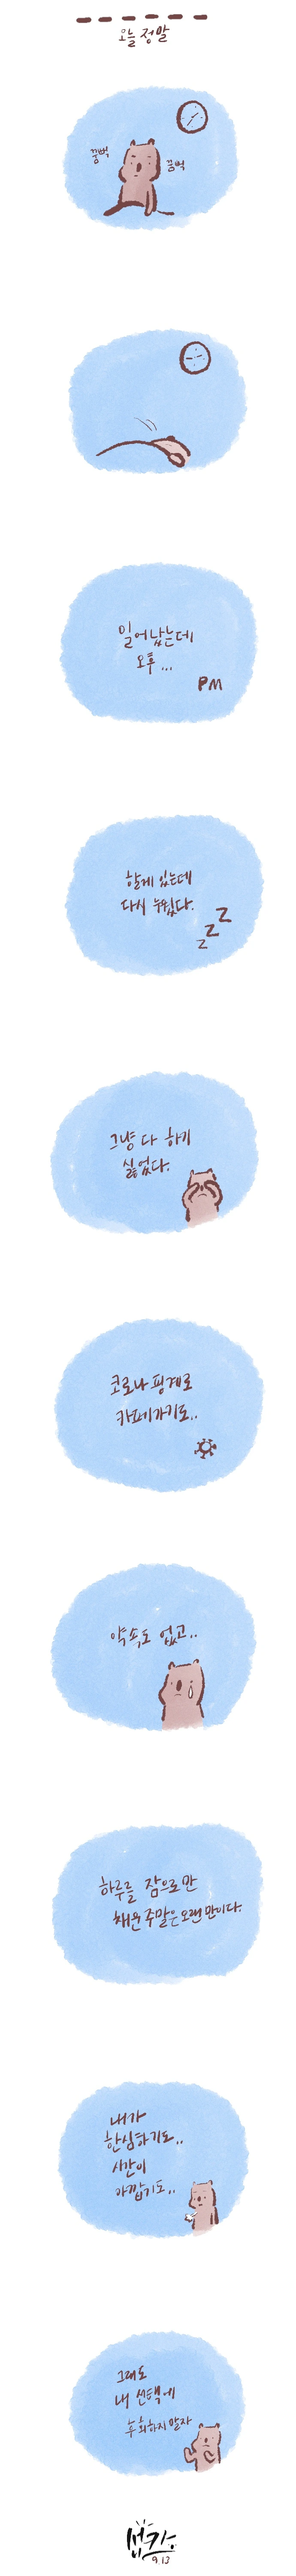 오늘 정말
꿈벅
꿈벅
일어났는데
오후...
PM
할게 있는데
다시 누웠다.
z z z
그냥 다 하기
싫었다.
코로나 핑계로
카페가기도..
약속도 없고..
하루를 잠으로만
채운 주말은 오랜만이다.
내가
한심하기도..
시간이
아깝기도..
그래도
내 선택에
후회하지 말자
9.13